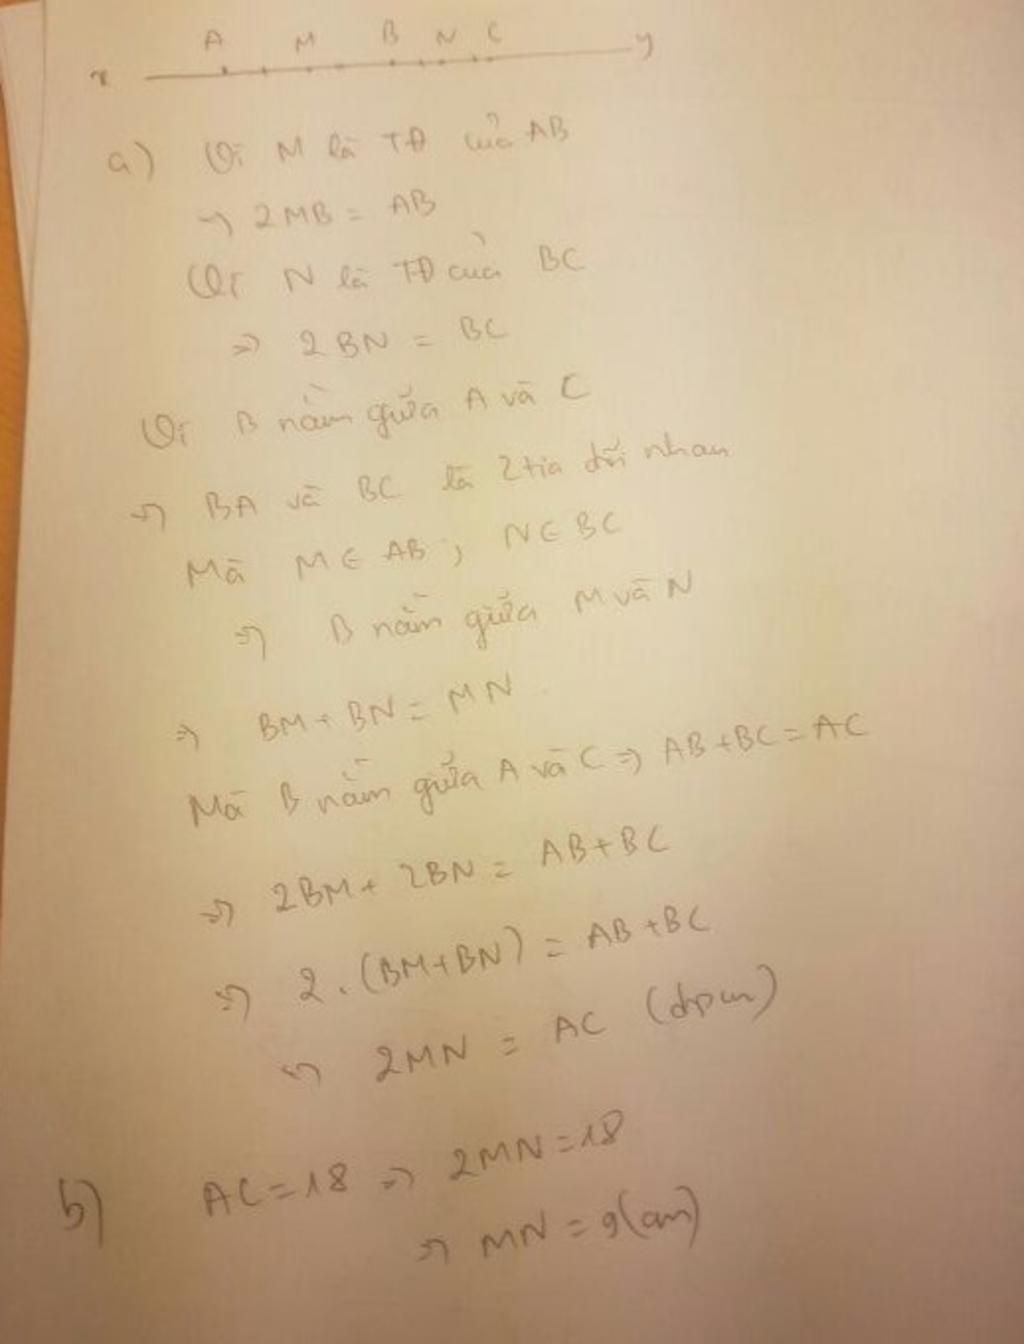 A M B N C
x y
a) Vì M là TĐ của AB
=> 2MB = AB
Vì N là TĐ của BC
=> 2BN = BC
Vì B nằm giữa A và C
=> BA và BC là 2 tia đối nhau
Mà M ∈ AB ; N ∈ BC
=> B nằm giữa M và N
=> BM + BN = MN
Mà B nằm giữa A và C => AB + BC = AC
=> 2BM + 2BN = AB + BC
=> 2 . (BM + BN) = AB + BC
=> 2MN = AC (đpcm)
b) AC = 18 => 2MN = 18
=> MN = 9 (cm)